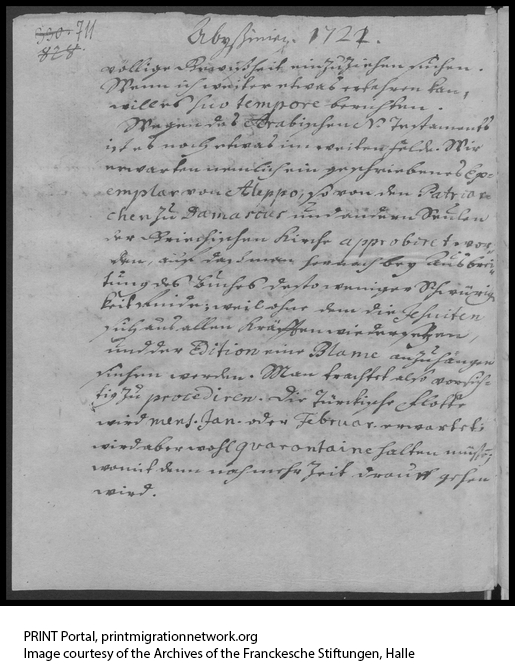 330. 711
828
Abyssinien. 1721.
völlige Gewißheit einzuziehen suchen.
Wenn ich weiter etwas erfahren kan,
will es suo tempore berichten.
Wegen des Arabischen N. Testaments
ist es noch etwas im weiten felde. Wir
erwarten nemlich ein geschriebenes Ex-
emplar von Aleppo, so von den Patriar-
chen zu Damascus und andern Seulen
der Griechischen Kirche approbiret wor-
den, auf daß man hernach bey Ausbrei-
tung des Buches desto weniger Schwürig-
keit finde; weil ohne dem die Jesuiten
sich aus allen Kräfften wiedersetzen,
und der Edition eine Blame anzuhängen
suchen werden. Man trachtet also vorsich-
tig zu procediren. Die Türckische Flotte
wird mens. Jan. oder Februar. erwartet;
wird aber wohl quarantaine halten müssen,
womit denn noch mehr Zeit drauff gehen
wird.
PRINT Portal, printmigrationnetwork.org
Image courtesy of the Archives of the Franckesche Stiftungen, Halle